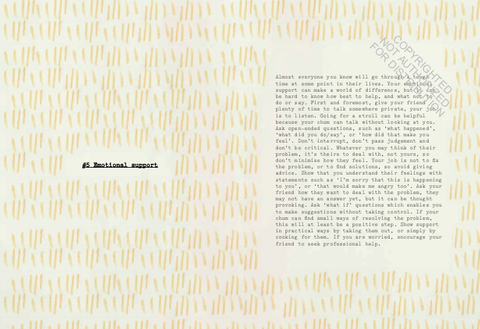 #5 Emotional support
Almost everyone you know will go through a tough
time at some point in their lives. Your emotional
support can make a world of difference, but it can
be hard to know how best to help, and what not to
do or say. First and foremost, give your friend
plenty of time to talk somewhere private, your job
is to listen. Going for a stroll can be helpful
because your chum can talk without looking at you.
Ask open-ended questions, such as 'what happened',
'what did you do/say', or 'how did that make you
feel'. Don't interrupt, don't pass judgement and
don't be critical. Whatever you may think of their
problem, it's theirs to deal with, not yours, so
don't minimise how they feel. Your job is not to fix
the problem, or to find solutions, so avoid giving
advice. Show that you understand their feelings with
statements such as 'I'm sorry that this is happening
to you', or 'that would make me angry too'. Ask your
friend how they want to deal with the problem, they
may not have an answer yet, but it can be thought
provoking. Ask 'what if' questions which enables you
to make suggestions without taking control. If your
chum can find small ways of resolving the problem,
this will at least be a positive step. Show support
in practical ways by taking them out, or simply by
cooking for them. If you are worried, encourage your
friend to seek professional help.
COPYRIGHTED
NOT AUTHORIZED
FOR DISTRIBUTION